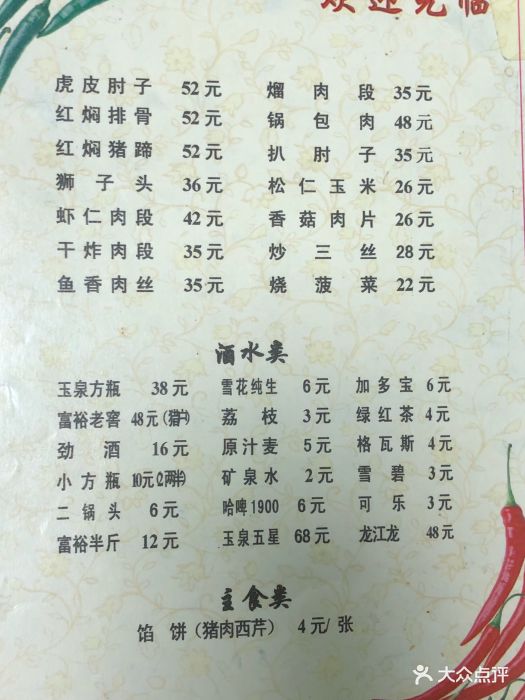 欢迎光临
虎皮肘子 52元 熘肉段 35元
红焖排骨 52元 锅包肉 48元
红焖猪蹄 52元 扒肘子 35元
狮子头 36元 松仁玉米 26元
虾仁肉段 42元 香菇肉片 26元
干炸肉段 35元 炒三丝 28元
鱼香肉丝 35元 烧菠菜 22元
酒水类
玉泉方瓶 38元 雪花纯生 6元 加多宝 6元
富裕老窖 48元(猎户) 荔枝 3元 绿红茶 4元
劲酒 16元 原汁麦 5元 格瓦斯 4元
小方瓶 10元(2两半) 矿泉水 2元 雪碧 3元
二锅头 6元 哈啤1900 6元 可乐 3元
富裕半斤 12元 玉泉五星 68元 龙江龙 48元
主食类
馅饼(猪肉西芹) 4元/张
大众点评